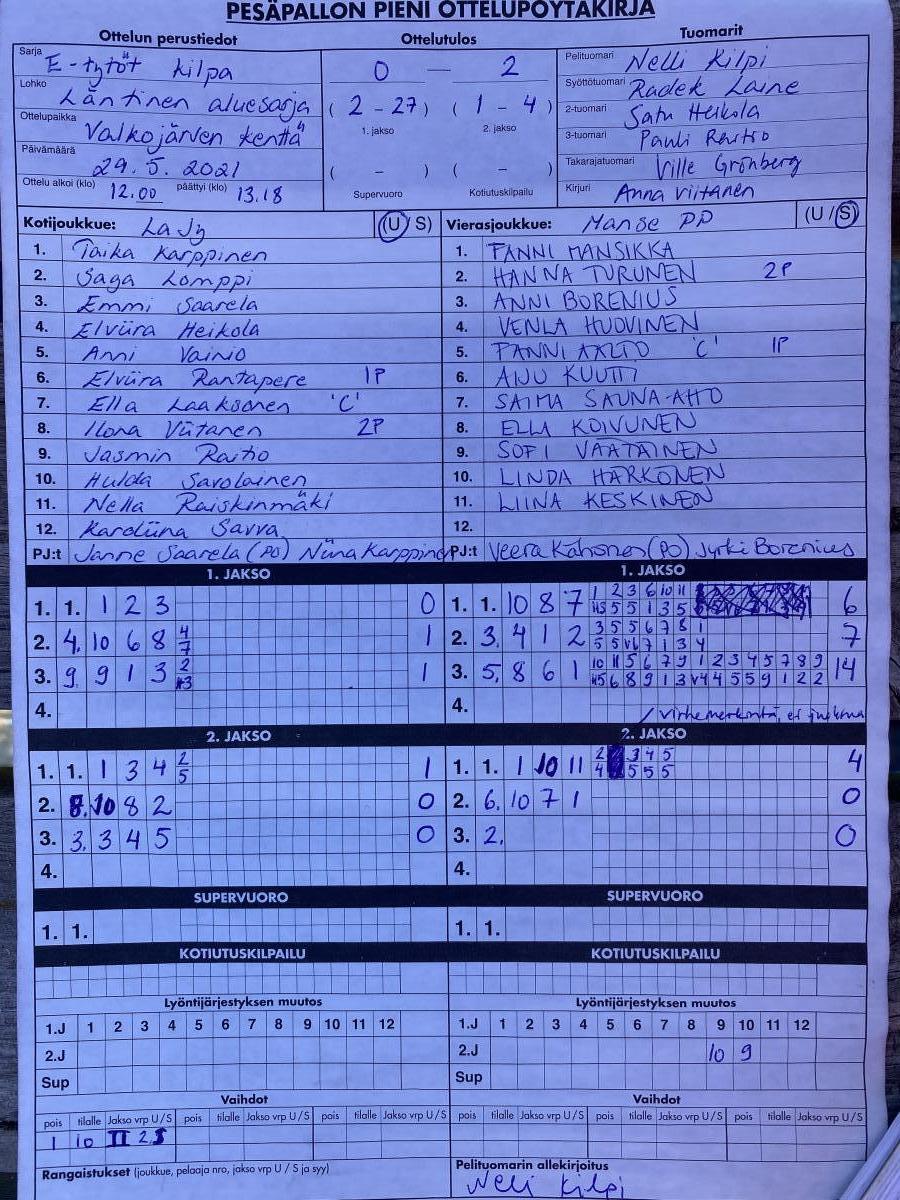 PESÄPALLON PIENI OTTELUPÖYTÄKIRJA
Ottelun perustiedot
Sarja E-tytöt kilpa
Lohko Läntinen aluesarja
Ottelupaikka Valkojärven kenttä
Päivämäärä 29.5.2021
Ottelu alkoi (klo) 12.00 päättyi (klo) 13.18
Ottelutulos
0 — 2
( 2 - 27 ) ( 1 - 4 )
1. jakso 2. jakso
( - ) ( - )
Supervuoro Kotiutuskilpailu
Tuomarit
Pelituomari Nelli Kilpi
Syöttötuomari Radek Laine
2-tuomari Satu Heikola
3-tuomari Pauli Raitio
Takarajatuomari Ville Grönberg
Kirjuri Anna Viitanen
Kotijoukkue: LaJy (U / S)
1. Taika Karppinen
2. Saga Lomppi
3. Emmi Saarela
4. Elviira Heikola
5. Anni Vainio
6. Elviira Rantapere 1P
7. Ella Laaksonen 'C'
8. Ilona Viitanen 2P
9. Jasmin Raitio
10. Hulda Savolainen
11. Nella Raiskinmäki
12. Karoliina Savra
PJ:t Janne Saarela (PO) Niina Karppinen
Vierasjoukkue: Manse PP (U / S)
1. FANNI MANSIKKA
2. HANNA TURUNEN 2P
3. ANNI BORENIUS
4. VENLA HUOVINEN
5. FANNI AALTO 'C' 1P
6. AINU KUUTTI
7. SAIMA SAUNA-AHO
8. ELLA KOIVUNEN
9. SOFI VÄÄTÄINEN
10. LINDA HÄRKÖNEN
11. LIINA KESKINEN
12.
PJ:t Veera Kähönen (PO) Jyrki Borenius
1. JAKSO
1. 1. 1 2 3 0
2. 4. 10 6 8 4 1
7
3. 9. 9 1 3 2 1
#3
4.
1. JAKSO
1. 1. 10 8 7 1 2 3 6 10 11 6
#5 5 5 1 3 5
2. 3. 4 1 2 3 5 5 6 7 8 1 7
5 5 V6 7 1 3 4
3. 5. 8 6 1 10 11 5 6 7 9 1 2 3 4 5 7 8 9 14
#5 6 8 9 1 3 V4 4 5 5 9 1 2 2
4.
/ virhemerkintä, ei juoksua
2. JAKSO
1. 1. 1 3 4 2 1
5
2. 8. 10 8 2 0
3. 3. 3 4 5 0
4.
2. JAKSO
1. 1. 1 10 11 2 3 4 5 4
4 5 5 5
2. 6. 10 7 1 0
3. 2. 0
4.
SUPERVUORO
1. 1.
SUPERVUORO
1. 1.
KOTIUTUSKILPAILU
KOTIUTUSKILPAILU
Lyöntijärjestyksen muutos
1.J 1 2 3 4 5 6 7 8 9 10 11 12
2.J
Sup
Lyöntijärjestyksen muutos
1.J 1 2 3 4 5 6 7 8 9 10 11 12
2.J 10 9
Sup
Vaihdot
pois tilalle Jakso vrp U/S pois tilalle Jakso vrp U/S pois tilalle Jakso vrp U/S
1 10 II 2 S
Vaihdot
pois tilalle Jakso vrp U/S pois tilalle Jakso vrp U/S pois tilalle Jakso vrp U/S
Rangaistukset (joukkue, pelaaja nro, jakso vrp U / S ja syy)
Pelituomarin allekirjoitus
Nelli Kilpi